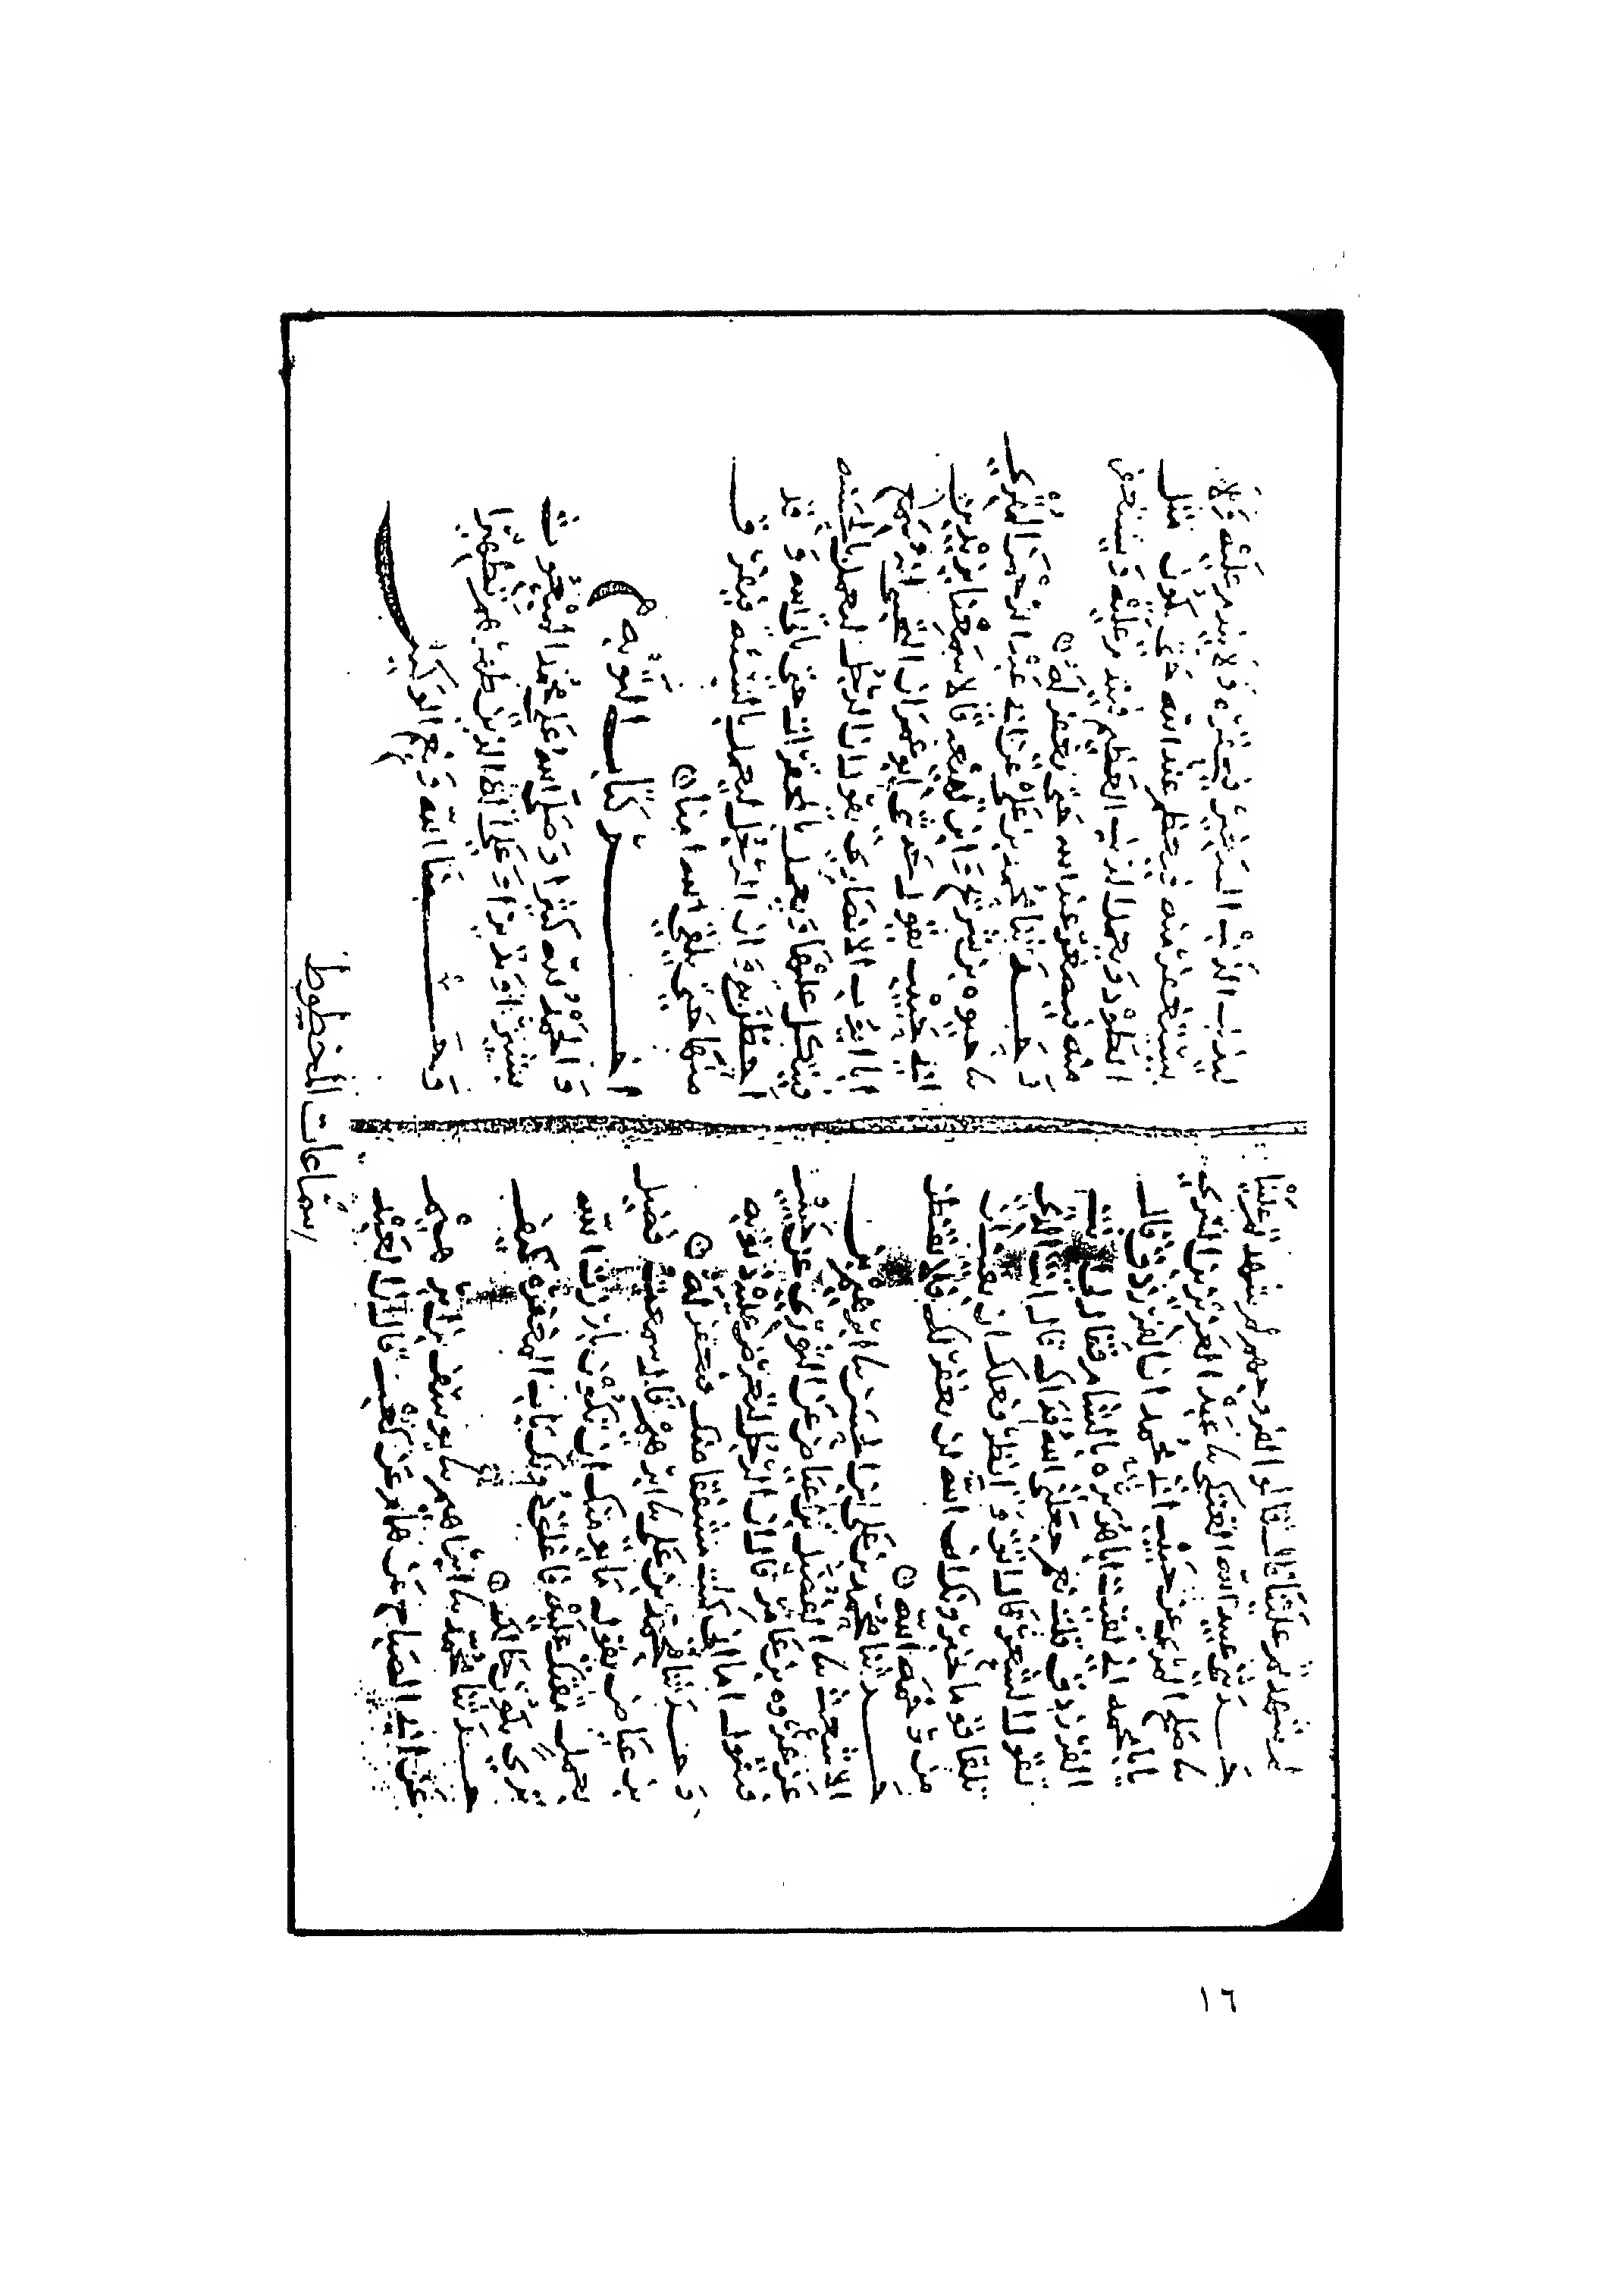 لم شهدتم علينا قال فقالوا لفروجهم لم شهدتم علينا
حدثني عبيد الله العتكي نا عبد العزيز بن السري
نا صالح المري عن حبيب ابي محمد انا الفرزدق قال
يا با محمد اني لقيت اباهريره بالشام فقال لي انت
الفرزدق قلت نعم جعلني الله فداك قال انت الذي
تقول الشعر قال اتق وانظر فلعلك ان بقيت ان
تلقا قوما يخبرونك ان الله لن يغفر لك فلا تقنطن
من رحمة الله
حدثنا محمد بن علي ابن الحسن نا ابرهيم بن
الاشعث نا الفضيل بن عياض عن الثوري عن حبيب
عن عروه بن عامر قال ان الرجل لتعرض عليه ذنوبه
فيقول اما اني كنت مشفقا منك فيغفر له
وحدثنا محمد بن علي نا ابرهيم قال سمعت فضيل
بن عياض يقول ما يومنك ان تكون بارزت الله
بعمل مقتك عليه فاغلق دونك باب المغفره كيف
ترى يكون حالك
حدثنا محمد نا ابراهيم نا يوسف بن ابرهيم
عن ابي الصباح عن همام عن كعب قال ان العبد
ليذنب الذنب الصغير فيحقره ولا يندم عليه ولا
يستغفر منه فيعظم عند الله حتى يكون مثل
الطود ويعمل الذنب العظيم فيندم عليه ويستغفر
منه فيصغر عند الله حتى يغفر له
وحدثنا محمد بن علي عن ابي عبد الرحمن المقري
نا حيوه بن شريح وابن لهيعه قالا سمعنا يزيد بن
ابي حبيب يقول حدثني ابو عمران التجيبي انه سمع
ابا ايوب الانصاري يقول ان الرجل ليعمل بالحسنه
فيتكل عليها ويعمل المحقرات حتى ياتي الله وقد
احظرن به وان الرجل ليعمل بالسيئه فيفرق
منها حتى يلقى الله امنا
اخر كتاب التوبه
والحمد لله كثيرا وصلى الله على محمد المبعوث
بشيرا ونذيرا وعلى اله الذين طهرهم تطهيرا
وحسبنا الله ونعم الوكيل
سماعات المخطوط
١٦